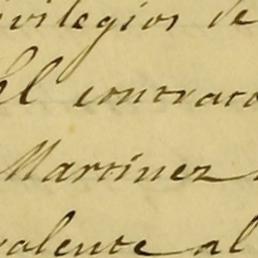 ivilegios de
El contrato
Martinez
valente al